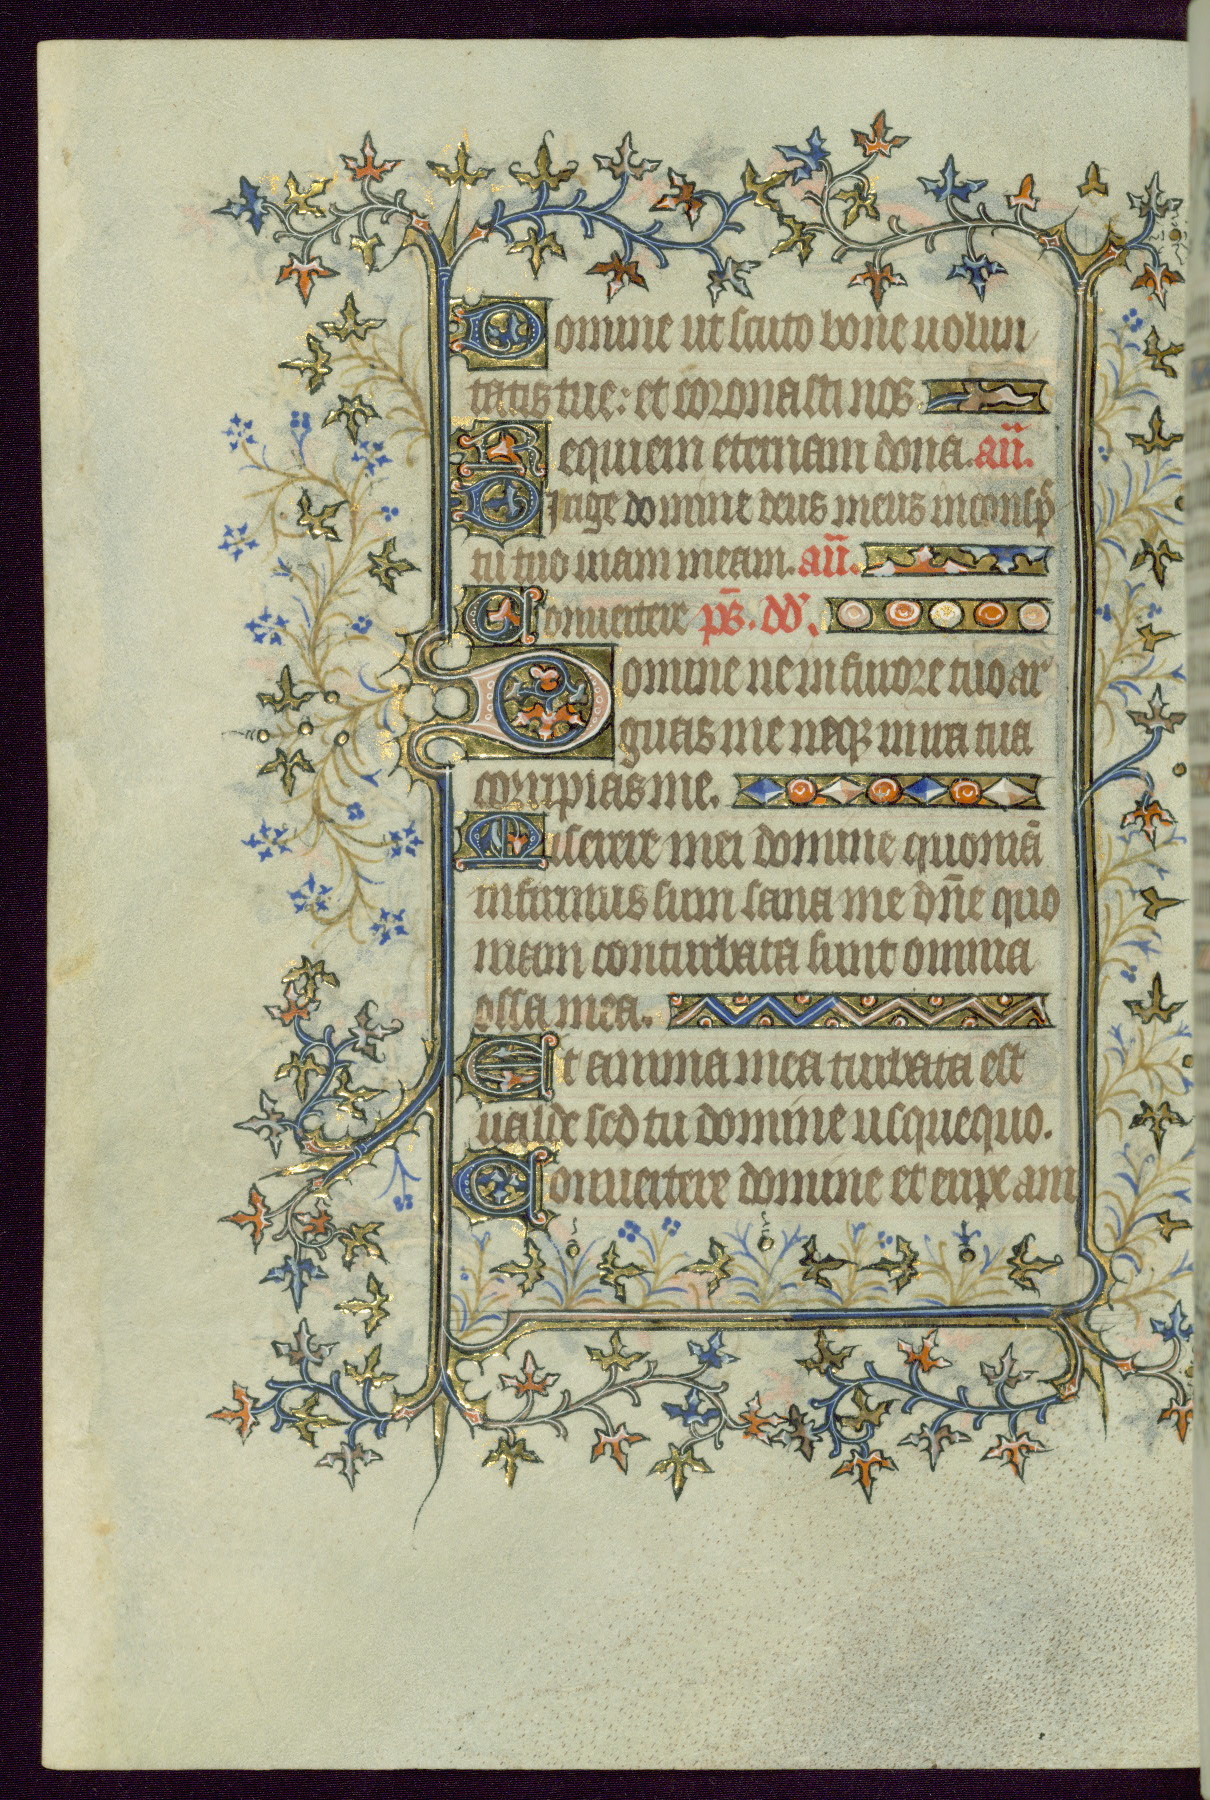 Domine ut scuto bone uolun
tatis tue: et coronasti nos
Requiem eternam dona. añ.
Dirige domine deus meus in consp̄
tu tuo uiam meam. añ.
Conuertere p̄s. dd.
Domine ne in furore tuo ar
guas me neqꝫ in ira tua
corripias me.
Miserere mei domine quoniā
infirmus sum sana me dñe quo
niam conturbata sunt omnia
ossa mea.
Et anima mea turbata est
ualde sed tu domine usquequo.
Conuertere domine et eripe ani